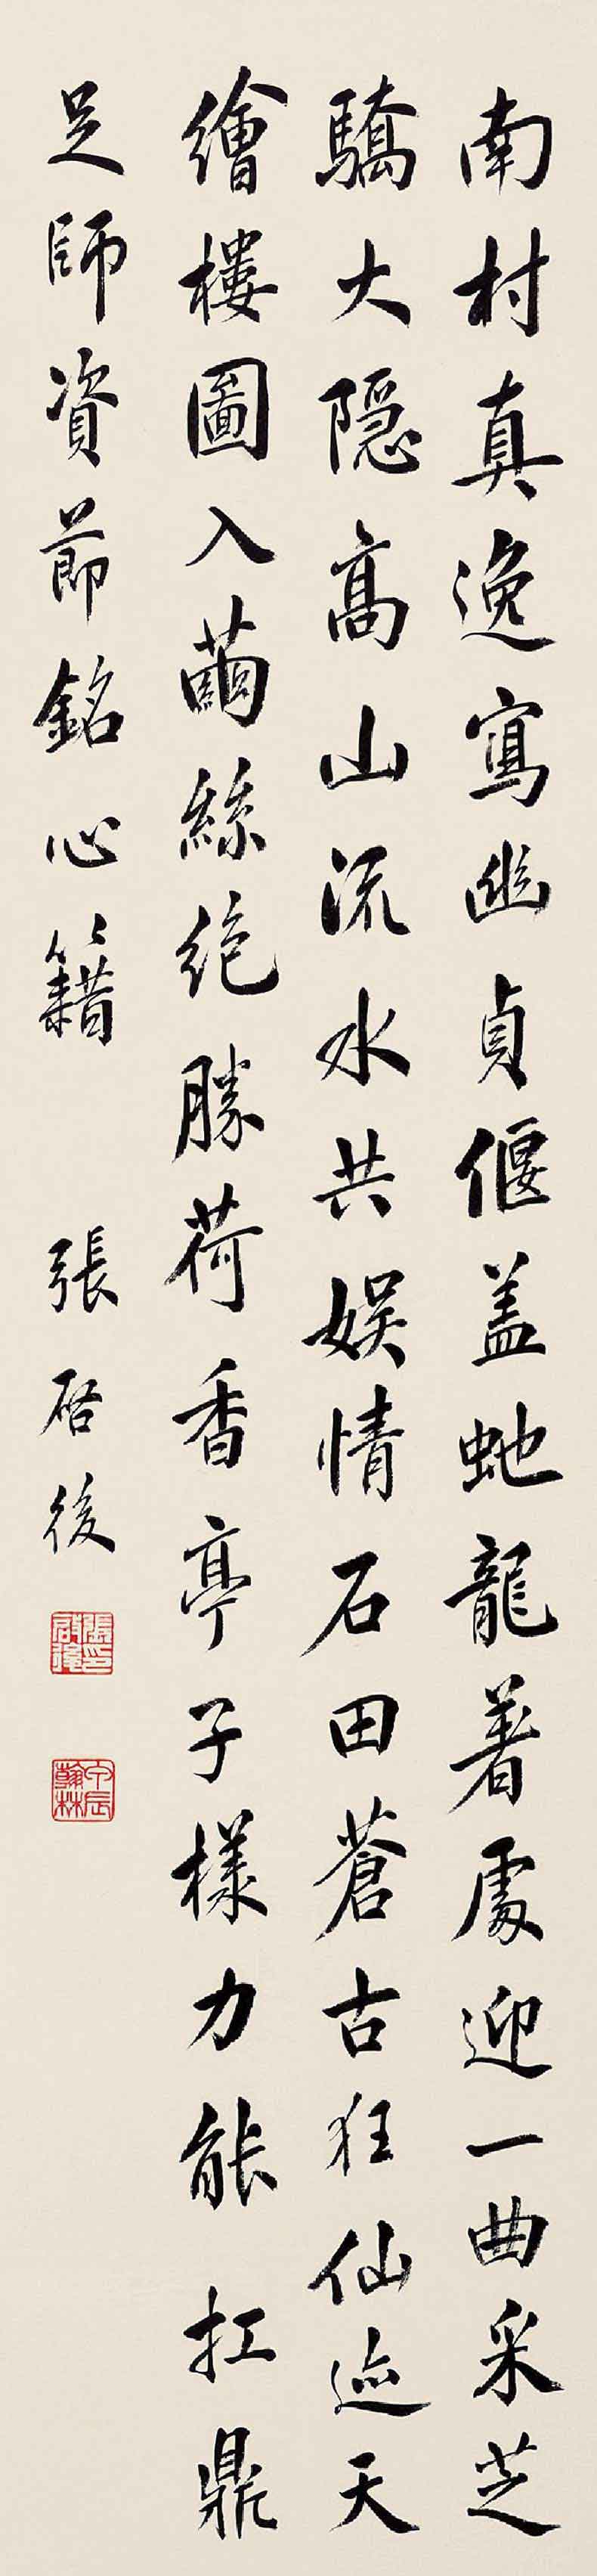 南村真逸寫幽貞偃蓋虵龍著處迎一曲采芝
驕大隱高山流水共娱情石田蒼古狂仙迹天
繪樓圖入繭絲絶勝荷香亭子樣力能扛鼎
足師資節銘心籍
張啓後
張啓後印
甲辰翰林